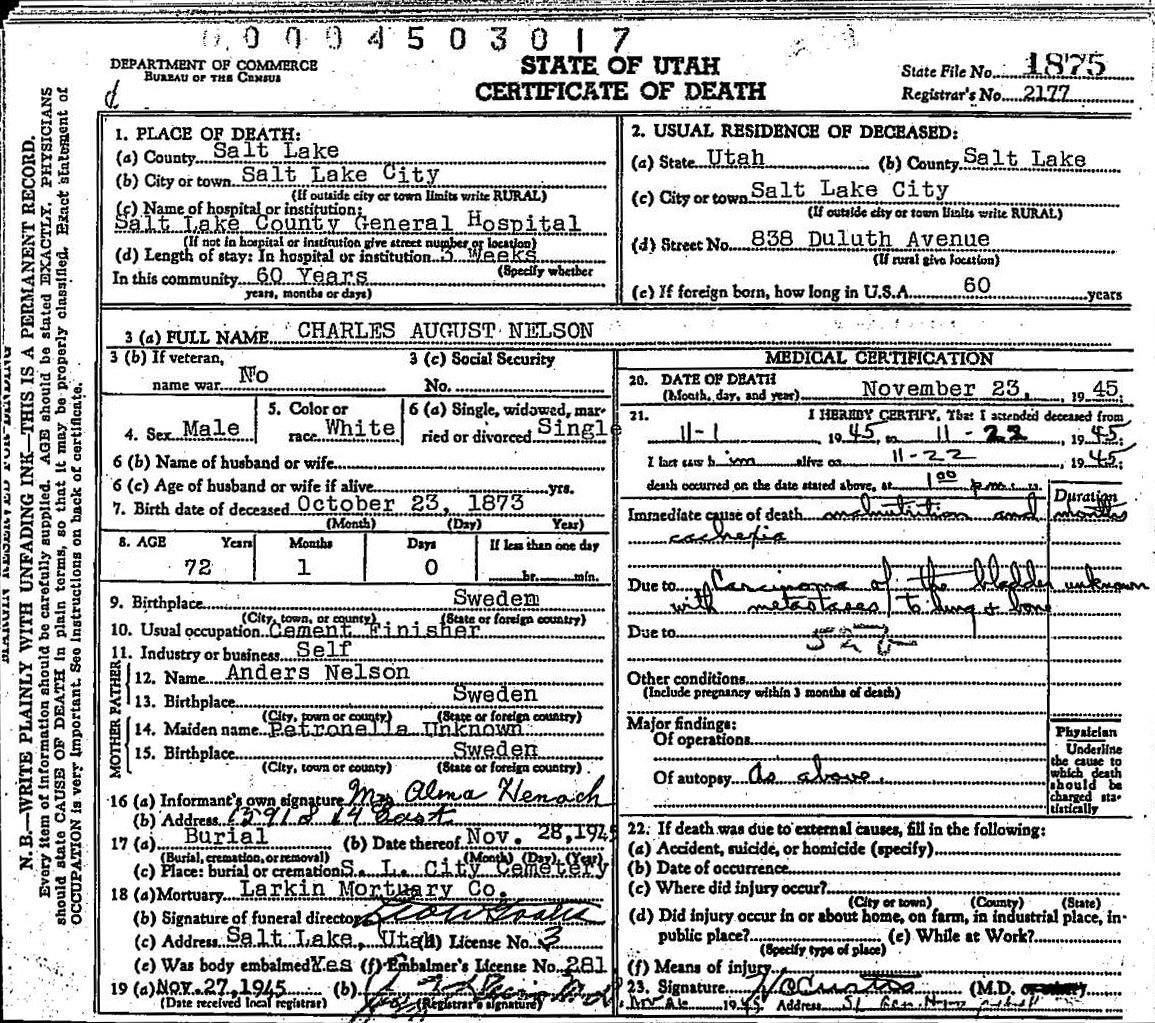 00004503017
DEPARTMENT OF COMMERCE
BUREAU OF THE CENSUS
STATE OF UTAH
CERTIFICATE OF DEATH
State File No. 1875
Registrar's No. 2177
N.B.—WRITE PLAINLY WITH UNFADING INK—THIS IS A PERMANENT RECORD.
Every item of information should be carefully supplied. AGE should be stated EXACTLY. PHYSICIANS
should state CAUSE OF DEATH in plain terms, so that it may be properly classified. Exact statement of
OCCUPATION is very important. See instructions on back of certificate.
1. PLACE OF DEATH:
(a) County Salt Lake
(b) City or town Salt Lake City
(If outside city or town limits write RURAL)
(c) Name of hospital or institution:
Salt Lake County General Hospital
(If not in hospital or institution give street number or location)
(d) Length of stay: In hospital or institution 3 Weeks
(Specify whether
In this community 60 Years
years, months or days)
2. USUAL RESIDENCE OF DECEASED:
(a) State Utah (b) County Salt Lake
(c) City or town Salt Lake City
(If outside city or town limits write RURAL)
(d) Street No. 838 Duluth Avenue
(If rural give location)
(e) If foreign born, how long in U.S.A. 60 years
3 (a) FULL NAME CHARLES AUGUST NELSON
3 (b) If veteran, 3 (c) Social Security
name war No No.
4. Sex Male 5. Color or race White 6 (a) Single, widowed, married or divorced Single
6 (b) Name of husband or wife
6 (c) Age of husband or wife if alive yrs.
7. Birth date of deceased October 23, 1873
(Month) (Day) Year)
8. AGE Years Months Days If less than one day
72 1 0 hr. min.
9. Birthplace Sweden
(City, town, or county) (State or foreign country)
10. Usual occupation Cement Finisher
11. Industry or business Self
FATHER
12. Name Anders Nelson
13. Birthplace Sweden
(City, town or county) (State or foreign country)
MOTHER
14. Maiden name Petronella Unknown
15. Birthplace Sweden
(City, town or county) (State or foreign country)
16 (a) Informant's own signature Mrs Alma Henoch
(b) Address East
17 (a) Burial (b) Date thereof Nov. 28, 1945
(Burial, cremation, or removal) (Month) (Day), (Year)
(c) Place: burial or cremation S. L. City Cemetery
18 (a) Mortuary Larkin Mortuary Co.
(b) Signature of funeral director
(c) Address Salt Lake, Utah (d) License No. 3
(e) Was body embalmed Yes (f) Embalmer's License No. 281
19 (a) Nov. 27, 1945 (b)
(Date received local registrar) (Registrar's signature)
MEDICAL CERTIFICATION
20. DATE OF DEATH
(Month, day, and year) November 23, 1945
21. I HEREBY CERTIFY, That I attended deceased from
11-1, 1945, to 11-22, 1945;
I last saw him alive on 11-22, 1945;
death occurred on the date stated above, at 1 00 p.m. m.
Duration
Immediate cause of death malnutrition and months
cachexia
Due to Carcinoma of the bladder unknown
with metastases to lung + bone
Due to
Other conditions
(Include pregnancy within 3 months of death)
Major findings:
Of operations
Of autopsy As above.
Physician
Underline
the cause to
which death
should be
charged sta-
tistically
22. If death was due to external causes, fill in the following:
(a) Accident, suicide, or homicide (specify)
(b) Date of occurrence
(c) Where did injury occur?
(City or town) (County) (State)
(d) Did injury occur in or about home, on farm, in industrial place, in-
public place? (e) While at Work?
(Specify type of place)
(f) Means of injury
23. Signature (M.D.
1945 Address